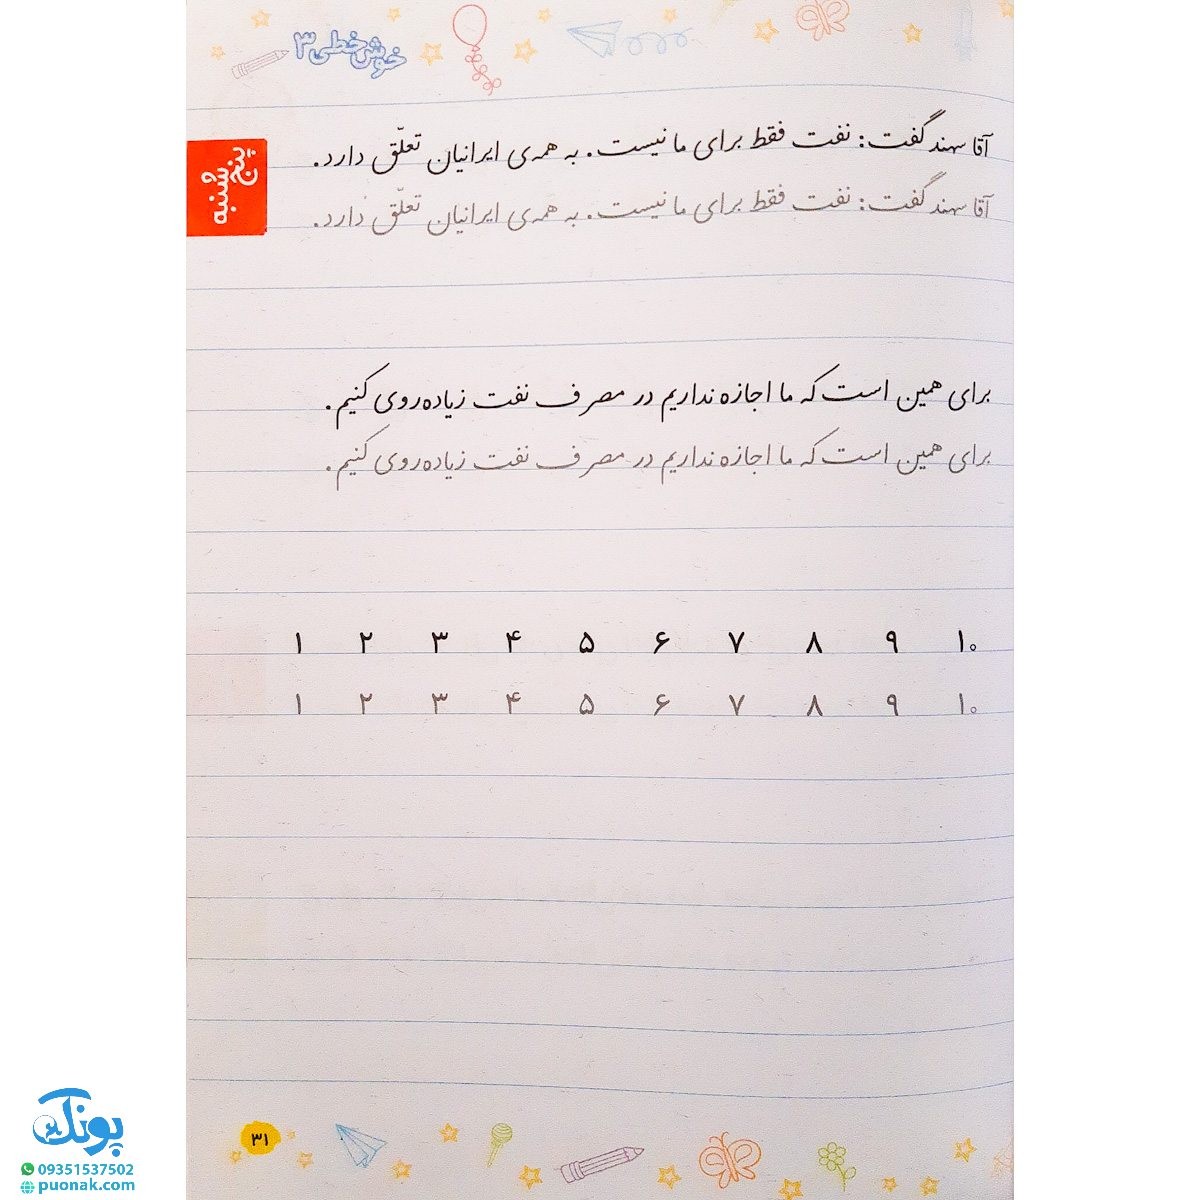 خوش‌خطی ۳
پنج‌شنبه
آقا سهند گفت: نفت فقط برای ما نیست. به همه‌ی ایرانیان تعلّق دارد.
آقا سهند گفت: نفت فقط برای ما نیست. به همه‌ی ایرانیان تعلّق دارد.
برای همین است که ما اجازه نداریم در مصرف نفت زیاده‌روی کنیم.
برای همین است که ما اجازه نداریم در مصرف نفت زیاده‌روی کنیم.
۱ ۲ ۳ ۴ ۵ ۶ ۷ ۸ ۹ ۱۰
۱ ۲ ۳ ۴ ۵ ۶ ۷ ۸ ۹ ۱۰
۳۱
پونک
09351537502
puonak.com